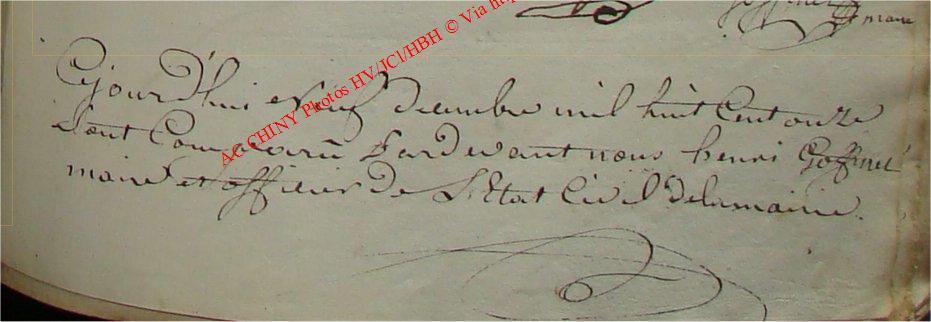 Goffinet
maire
AC CHINY Photos HV/JCl/HBH © Via
Cejourd'hui neuf decembre mil huit Cent onze
Sont Comparu Pardevant nous henri Goffinet
maire et officier de L'Etat Civil delamairie.